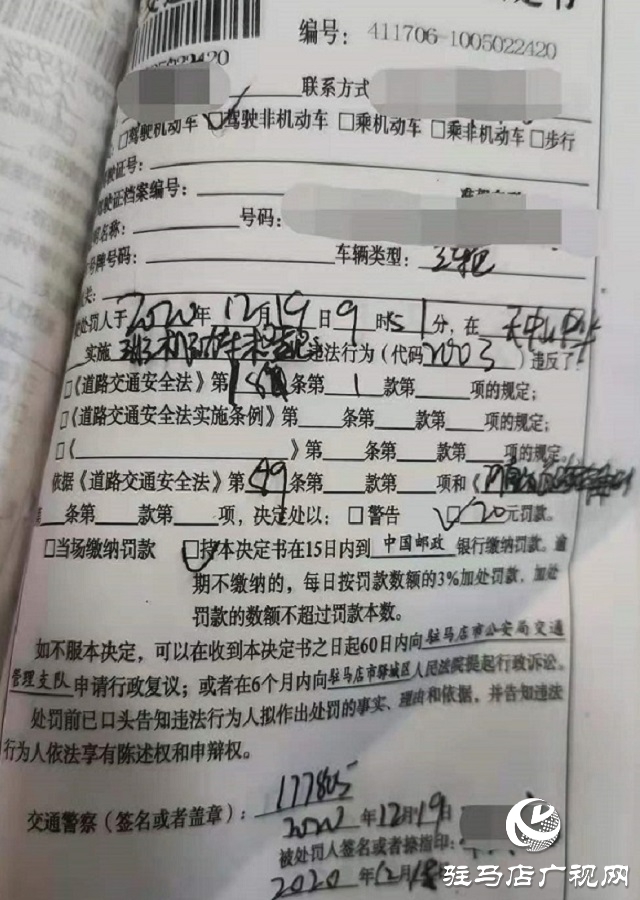 编号：411706-1005022420
05022420
联系方式
□驾驶机动车 □驾驶非机动车 □乘机动车 □乘非机动车 □步行
驾驶证号：
驾驶证档案编号：
名称： 号码：
号牌号码： 车辆类型：
被处罚人于2020年12月19日9时51分，在
实施 违法行为（代码2003）违反了：
□《道路交通安全法》第 条第1款第 项的规定；
□《道路交通安全法实施条例》第 条第 款第 项的规定；
□《 》第 条第 款第 项的规定。
依据《道路交通安全法》第89条第 款第 项和《
第 条第 款第 项，决定处以：□警告 □20元罚款。
□当场缴纳罚款 □持本决定书在15日内到 中国邮政 银行缴纳罚款。逾
期不缴纳的，每日按罚款数额的3%加处罚款，加处
罚款的数额不超过罚款本数。
如不服本决定，可以在收到本决定书之日起60日内向驻马店市公安局交通
管理支队申请行政复议；或者在6个月内向驻马店市驿城区人民法院提起行政诉讼。
处罚前已口头告知违法行为人拟作出处罚的事实、理由和依据，并告知违法
行为人依法享有陈述权和申辩权。
交通警察（签名或者盖章）：
2020年12月19日
被处罚人签名或者捺指印：
2020年12月
驻马店广视网